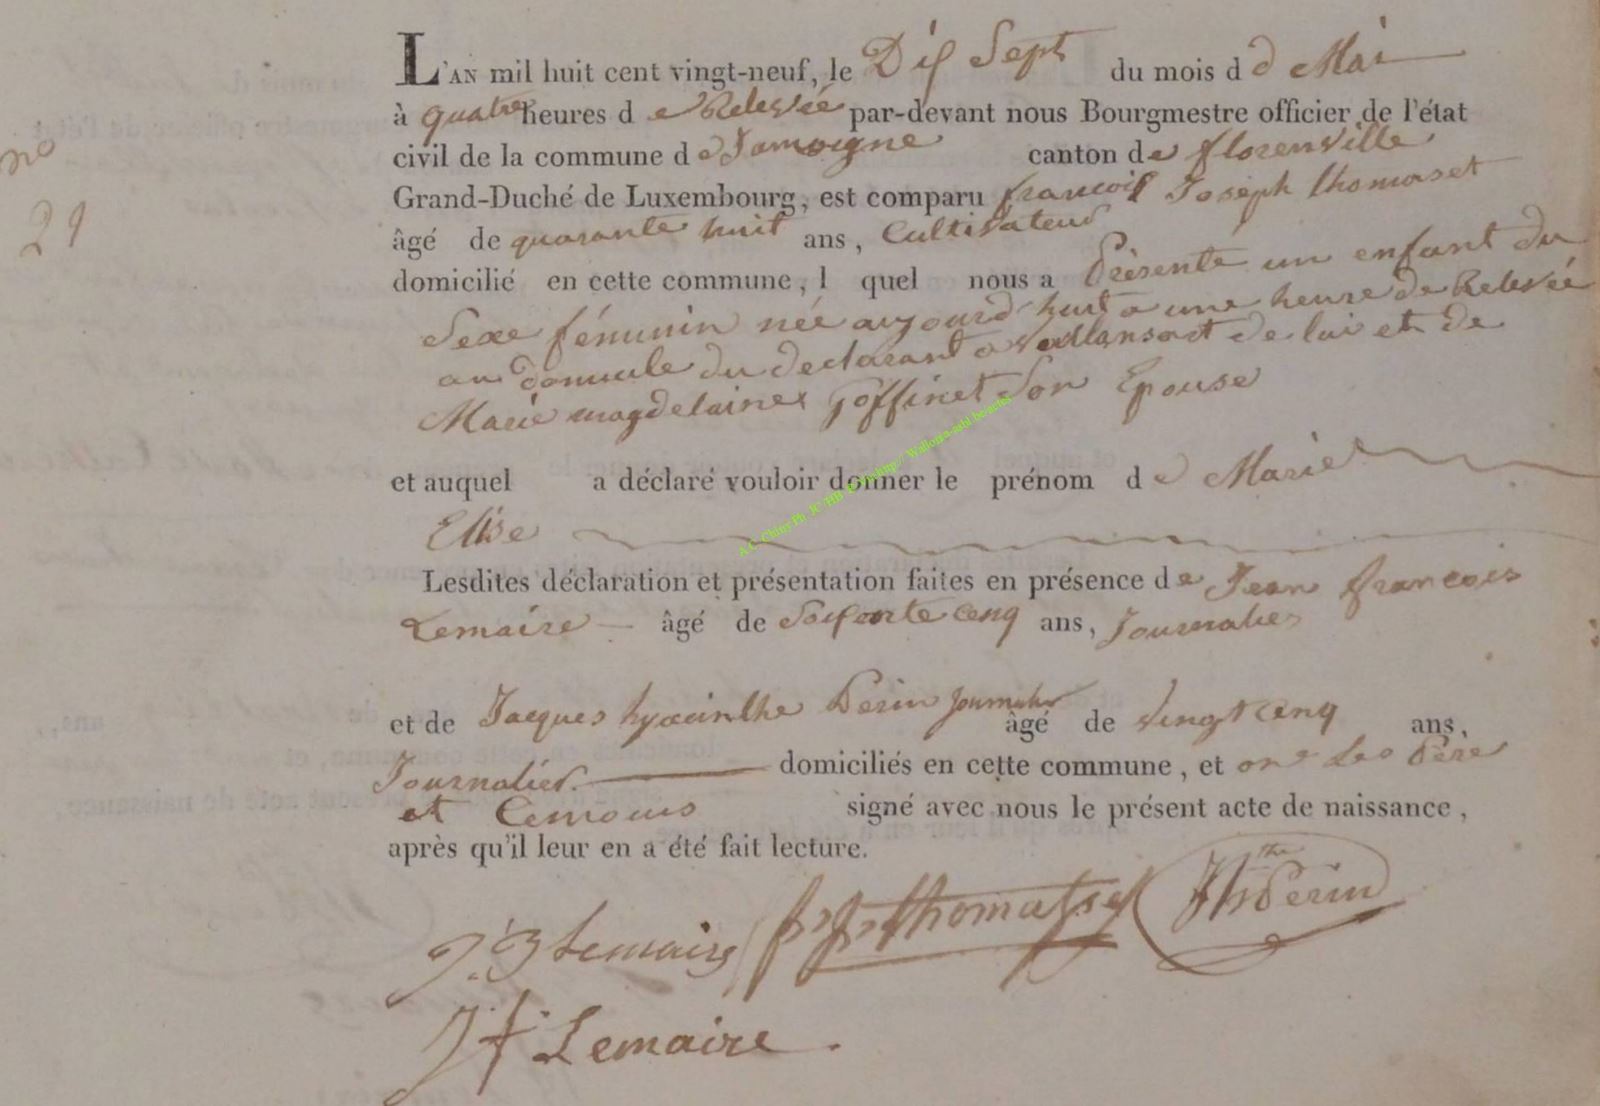 L'AN mil huit cent vingt-neuf, le Dix Sept du mois d e Mai
à quatre heures d e Relevée par-devant nous Bourgmestre officier de l'état
civil de la commune d e Jamoigne canton de florenville
Grand-Duché de Luxembourg, est comparu francois Joseph thomaset
âgé de quarante huit ans, Cultivateur
domicilié en cette commune, l quel nous a Présenté un enfant du
Sexe féminin née aujourd'huit a une heure de Relevée
au domicile du declarant a Vallansart de lui et de
Marie magdelaine Goffinet Son Epouse
et auquel a déclaré vouloir donner le prénom d e Marie
Elise
Lesdites déclaration et présentation faites en présence de Jean francois
Lemaire âgé de Soixante cenq ans, Journalier
et de Jacques hyacinthe Perin Journalier âgé de vingt cenq ans,
Journalier domiciliés en cette commune, et ont Les Père
et Temouis signé avec nous le présent acte de naissance,
après qu'il leur en a été fait lecture.
no
29
Lemaire
thomasset
JhthePerin
Jf Lemaire.
A.C. Chiny Ph
http:// Wallonia-asbl.be/actes